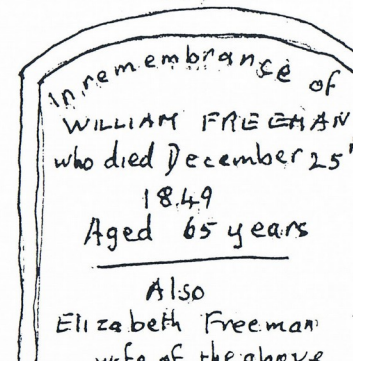 In remembrance of
WILLIAM FREEMAN
who died December 25"
1849
Aged 65 years
Also
Elizabeth Freeman
wife of the above